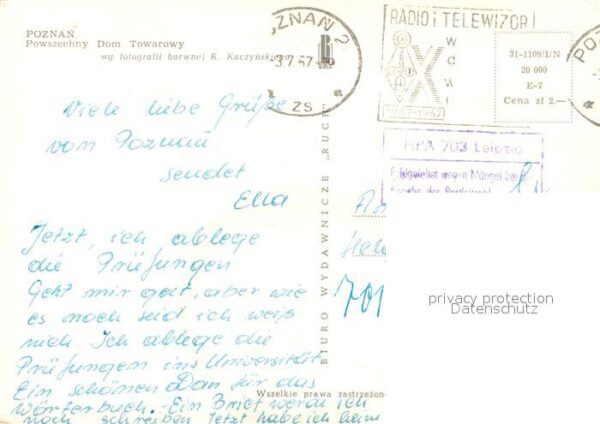 POZNAŃ
Powszechny Dom Towarowy
wg fotografii barwnej K. Kaczyńskiego
ZNAŃ 2
-3.7.67-
ZS
RADIO i TELEWIZORI
1927-1967
PO
31-1109/I/N
20 000
E-7
Cena zł 2.—
HPA 703 Leipzig
wegen Mängel bei
Angabe der Postleitzahl
Viele liebe Grüße
vom Poznań
sendet
Ella
Jetzt, ich ablege
die Prüfungen
Geht mir gut, aber wie
es noch seid ich weiß
nich. Ich ablege die
Prüfungen ins Universität
Ein schönen Dan für das
Wörterbuch. Ein Brief werde ich
noch schreiben Jetzt habe ich keine
BIURO WYDAWNICZE „RUCH"
701
Wszelkie prawa zastrzeżone
privacy protection
Datenschutz